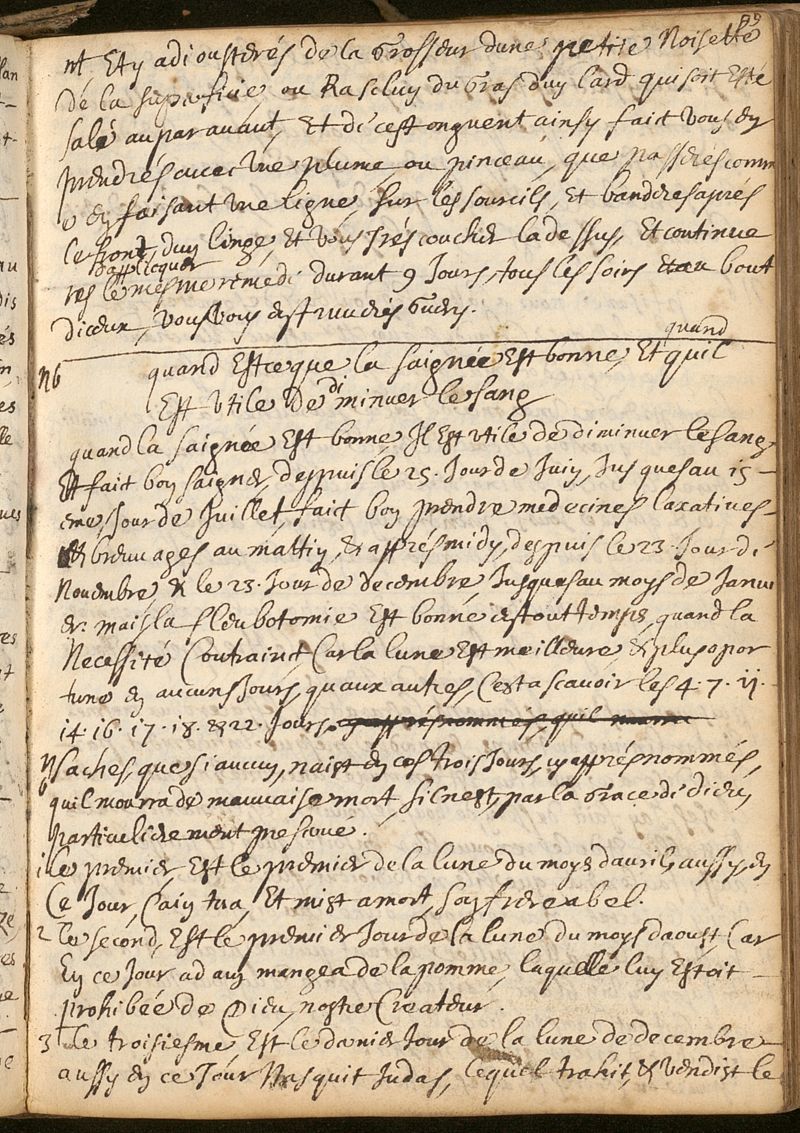 nt, Et y adiousterés de la Grosseur dune petite Noisette
de la superficie, ou Rascluy du Gras duy lard qui soit Esté
salé auparauant, Et dicest onguent ainsy faict vous en
prendrés auec vne plume, ou pinceau, que passeres comm
e en faisant vne ligne, sur les sourcils, Et banderes aprés
le front, duy linge, Et vous Irés coucher la dessus, Et continue
d'applicquer
res le mesme remedi durant 9 Jours, tous les soirs Et au bout
diceux, vous vous en truuerés Guery.
quand
N6 quand Est ce que la saignée Est bonne, Et quil
Est vtile de diminuer le sang
quand la saignée Est bonne Il Est vtile de diminuer le sang
Et faict boy saigner, despuis le 25. Jour de Juiy, Jusques au 15
eme, Jour de Juillet, faict boy prendre medecines laxatiues
& breuuages au mattiy, & apprés midy, despuis le 23. Jour di
Nouembre & le 23. Jour de decembre, Jusques au moys de Janui
er. mais la fleubotomie Est bonne en tout temps, quand la
Necessité Contrainct Car la lune Est meilleure & plus opor
tune en aucuns Jours, quaux autres, Cest a scauoir les 4. 7. 11.
14. 16. 17. 18. & 22. Jours.
N6 saches, que si aucuy, naist en ces trois Jours, cy apprés nommés,
quil mourra de mauuaise mort, sil nest, par la Grace de dieu
particulierement preserué.
1 le premier, Est le premier de la lune du moys dauril, aussy en
Ce Jour, Caiy tua, Et mist a mort, soy frere abel.
2 le second, Est le premier Jour de la lune du moys daoust Car
En ce Jour adam mangea de la pomme, laquelle luy Estoit
prohibée de Dieu, nostre Createur.
3 le troisiesme Est le dernier Jour de la lune de decembre
aussy en ce Jour Nasquit Judas, lequel trahit, & vendist le